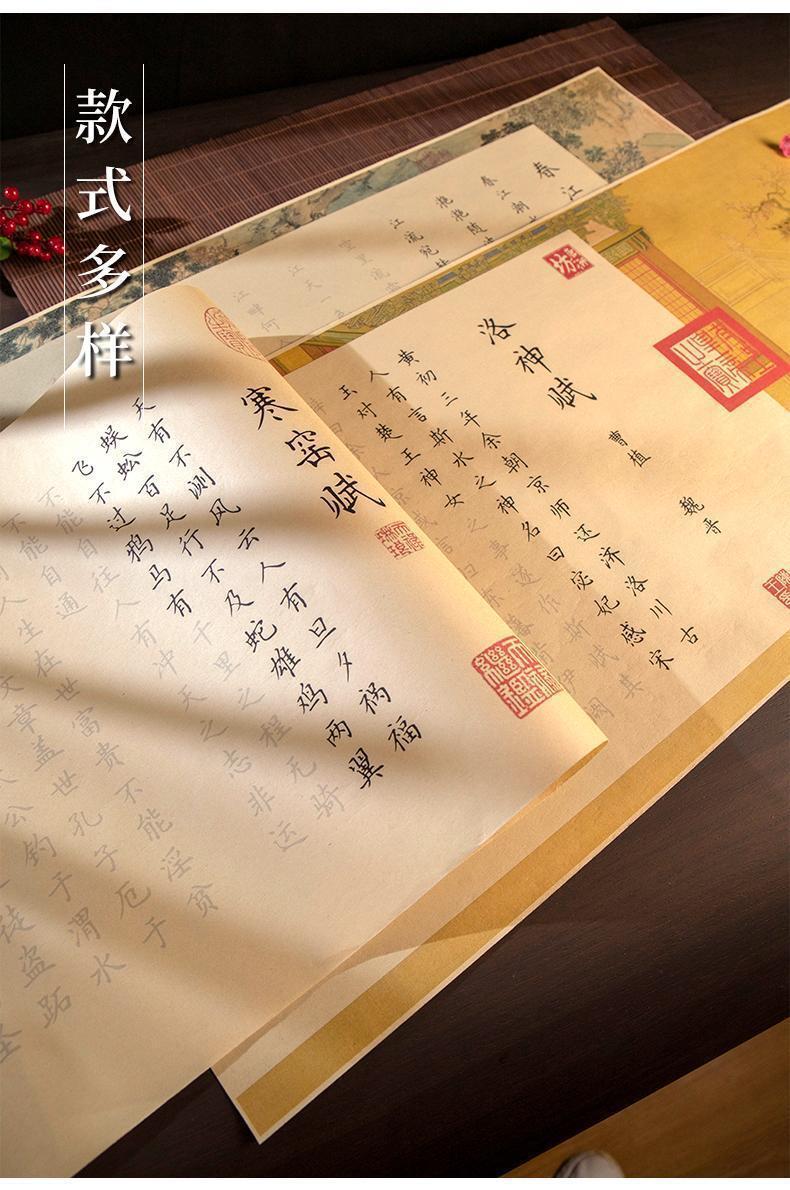 款式多样
春江
春江潮
滟滟随
江流宛
空里流
江天一
江畔何人
洛神赋
魏晋
曹植
黄初三年余朝京师还济洛川古
人有言斯水之神名曰宓妃感宋
玉对楚王神女之事遂作斯赋其
寒窑赋
天有不测风云人有旦夕祸福
蜈蚣百足行不及蛇雄鸡两翼
飞不过鸦马有千里之程无骑
不能自往人有冲天之志非运
不能自通
人生在世富贵不能淫贫
文章盖世孔子厄于
公钓于渭水
徒盗跖